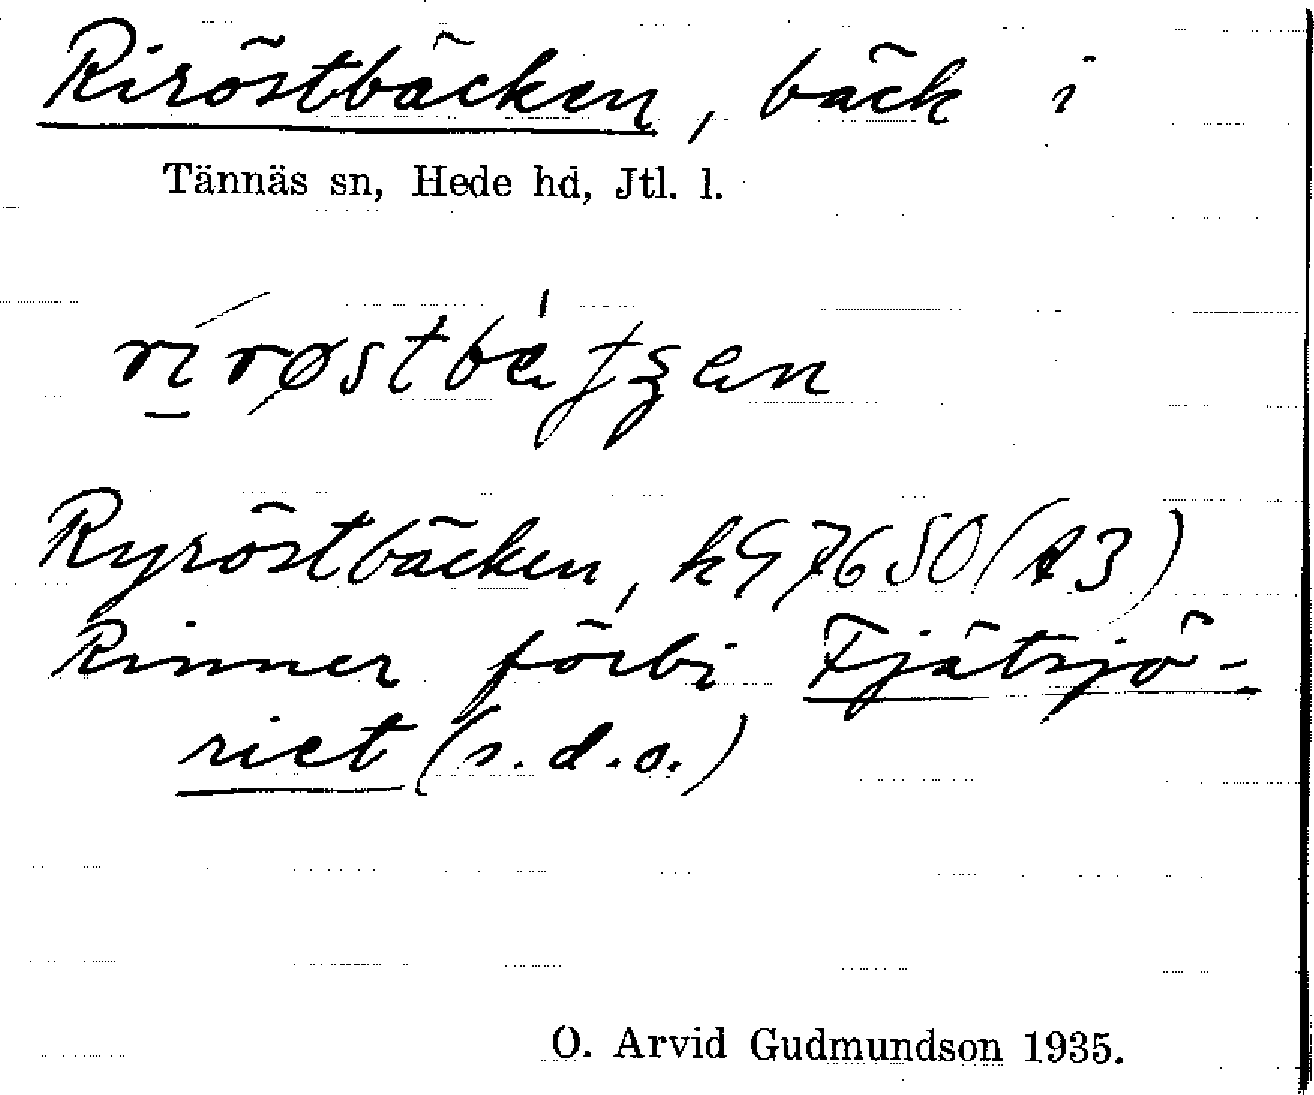 Riröstbäcken, bäck i
Tännäs sn, Hede hd, Jtl. l.
Ryröstbäcken, k97650(A3)
Rinner förbi Fjätsjö-
riet (s.d.o.)
O. Arvid Gudmundson 1935.